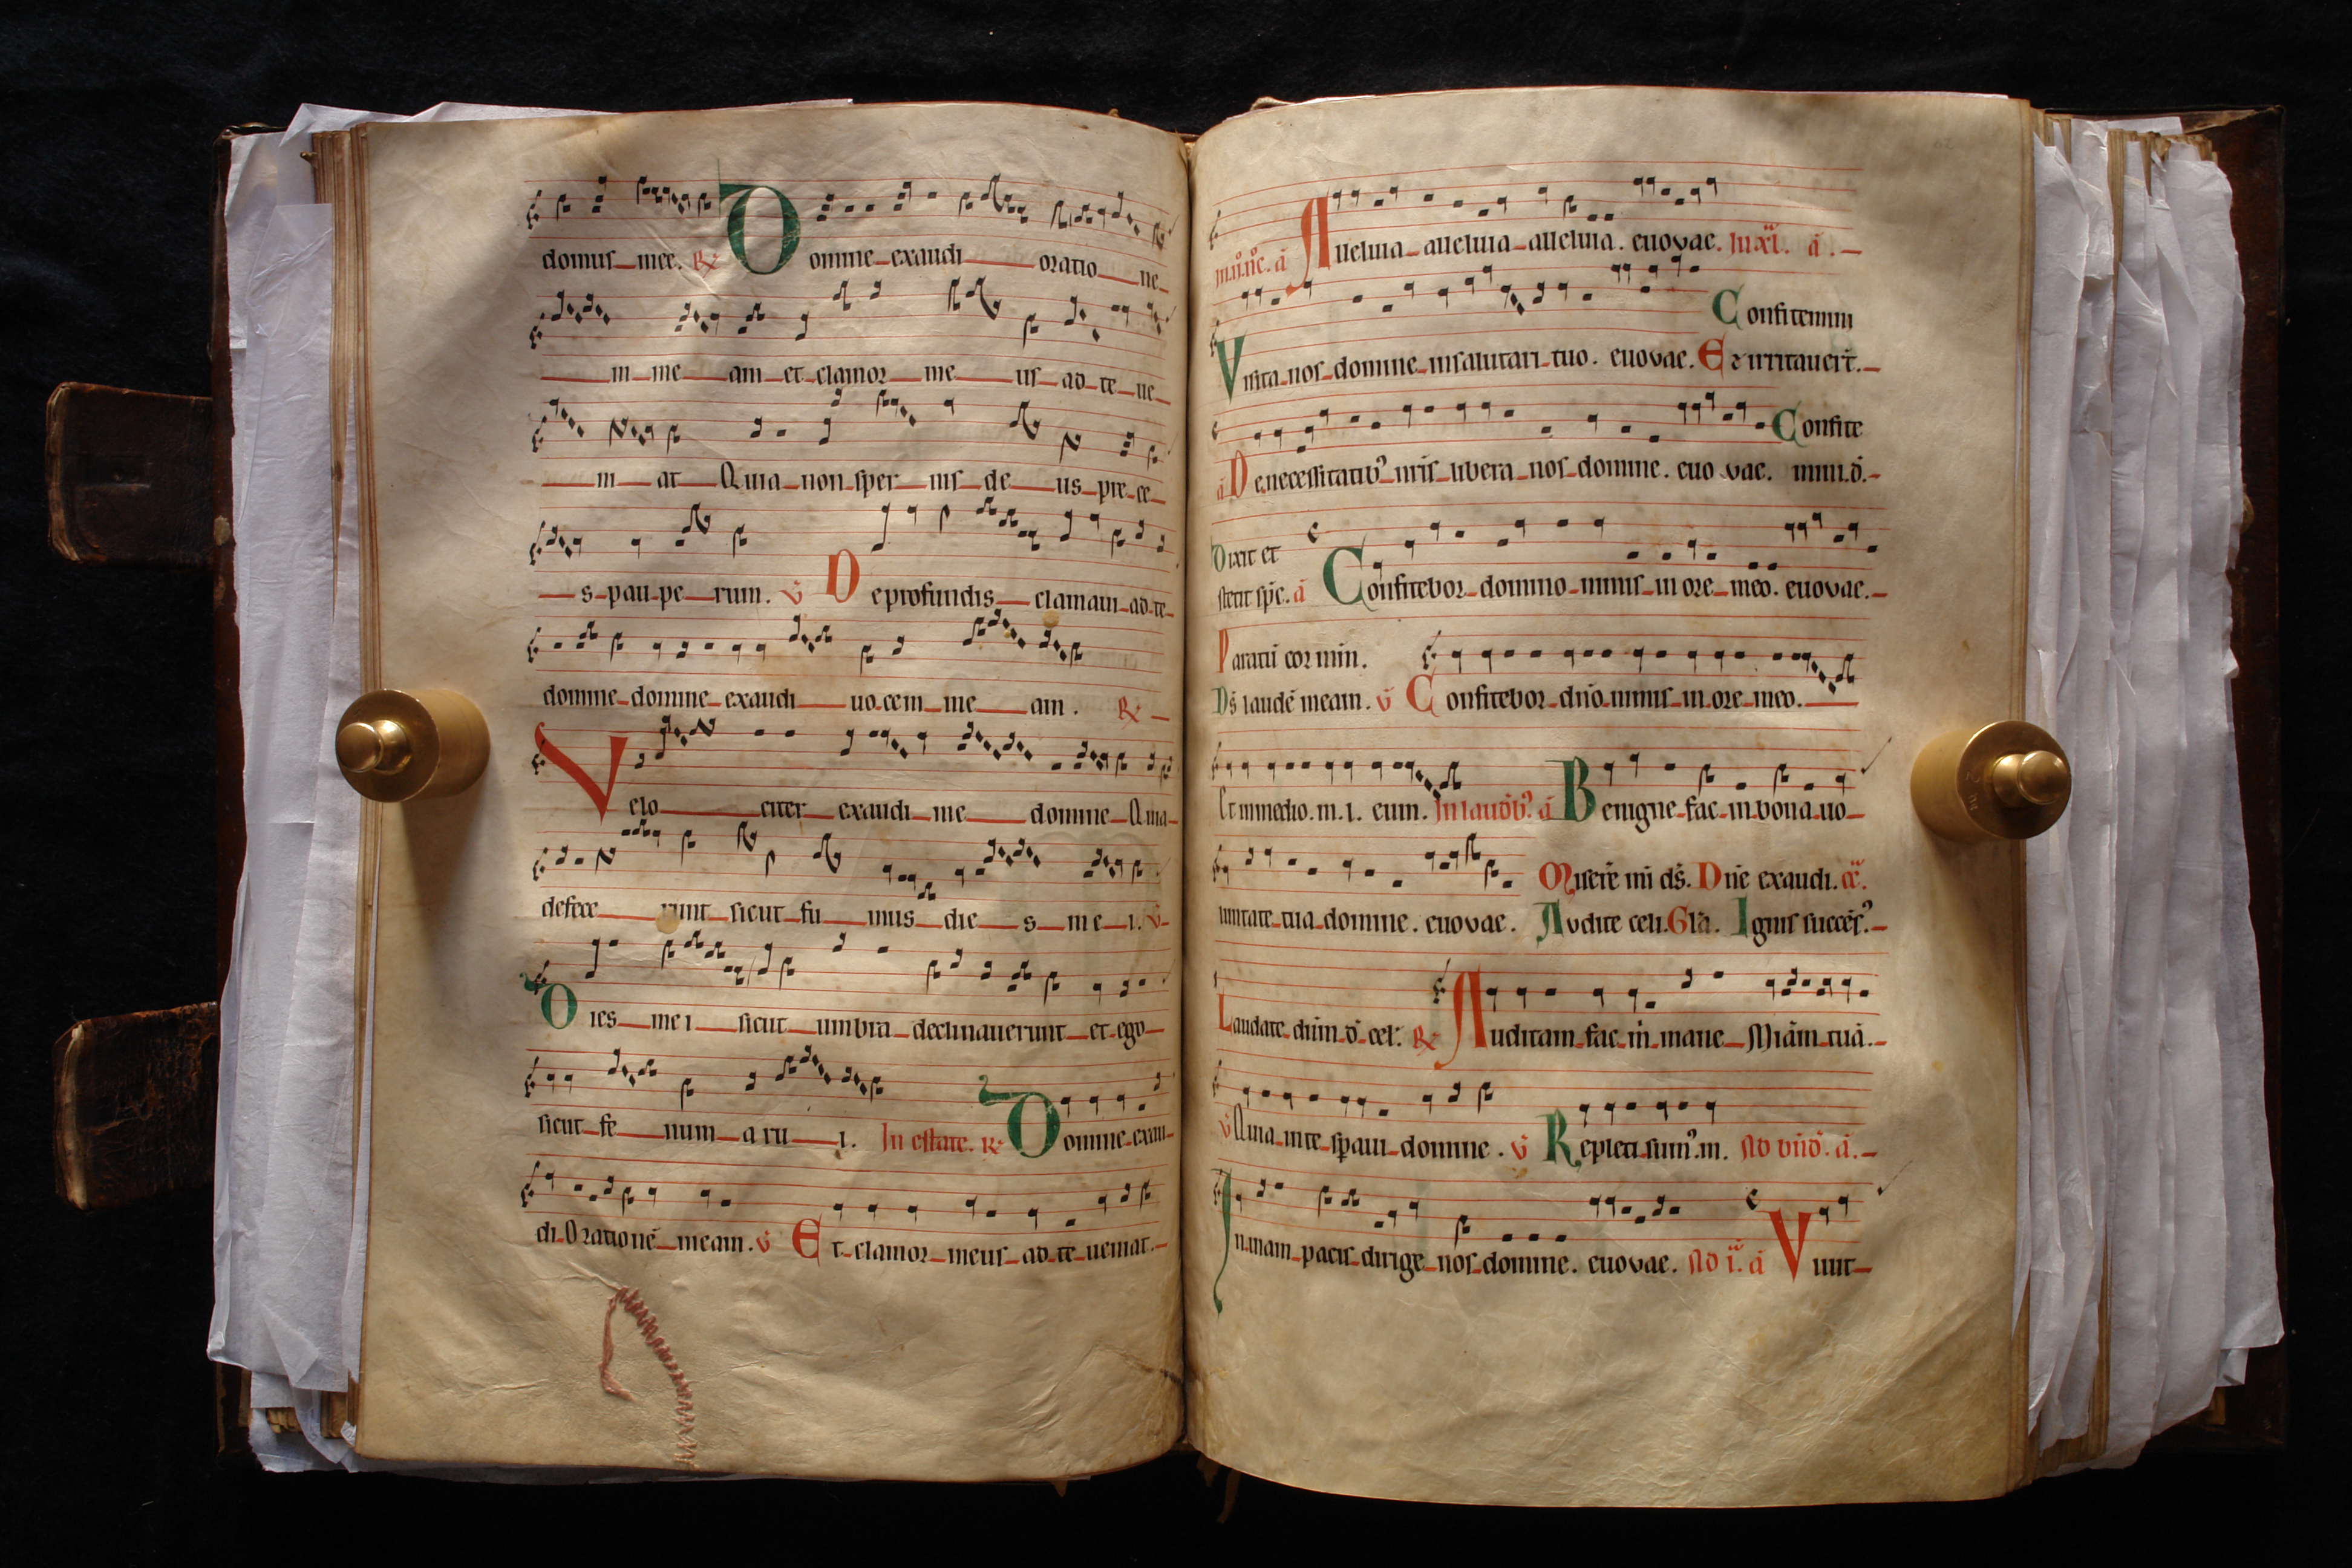 domus mee. R Domine exaudi oratio ne
m me am et clamor me us ad te ue
ni at Quia non sper nis de us pre ce
s pau pe rum. v De profundis clamaui ad te
domine domine exaudi uocem me am. R
Velo citer exaudi me domine Quia
defece runt sicut fu mus die s me i. v
Dies mei sicut umbra declinauerunt et ego
sicut fe num a ru i. In estate. R Domine exau
di Orationē meam. v Et clamor meus ad te ueniat.
62
a Aeluia aeuia alleluia. euovae. a.
Confitemini
Visita nos domine in salutari tuo. euovae. Et irritauert.
Confite
a De necessitatib' nris libera nos domine. euo vae. mini.
Dixit et
stetit spc. a Confitebor domino nimis in ore meo. euovae.
Paratū cor min.
Ds laudē meam. v Confitebor dno nimis in ore meo.
Et in medio. m. l. eum. In laudib' a Benigne fac in bona uo
luntate tua domine. euovae. Misere mi ds. Dne exaudi.
Audite celi. Gla. Ignis succes'.
Laudate dnm d cel. R Auditam fac m mane Miam tuā.
v Quia in te spaui domine. v Repleti sum' m. a.
In uiam pacis dirige nos domine. euovae. a Viuit